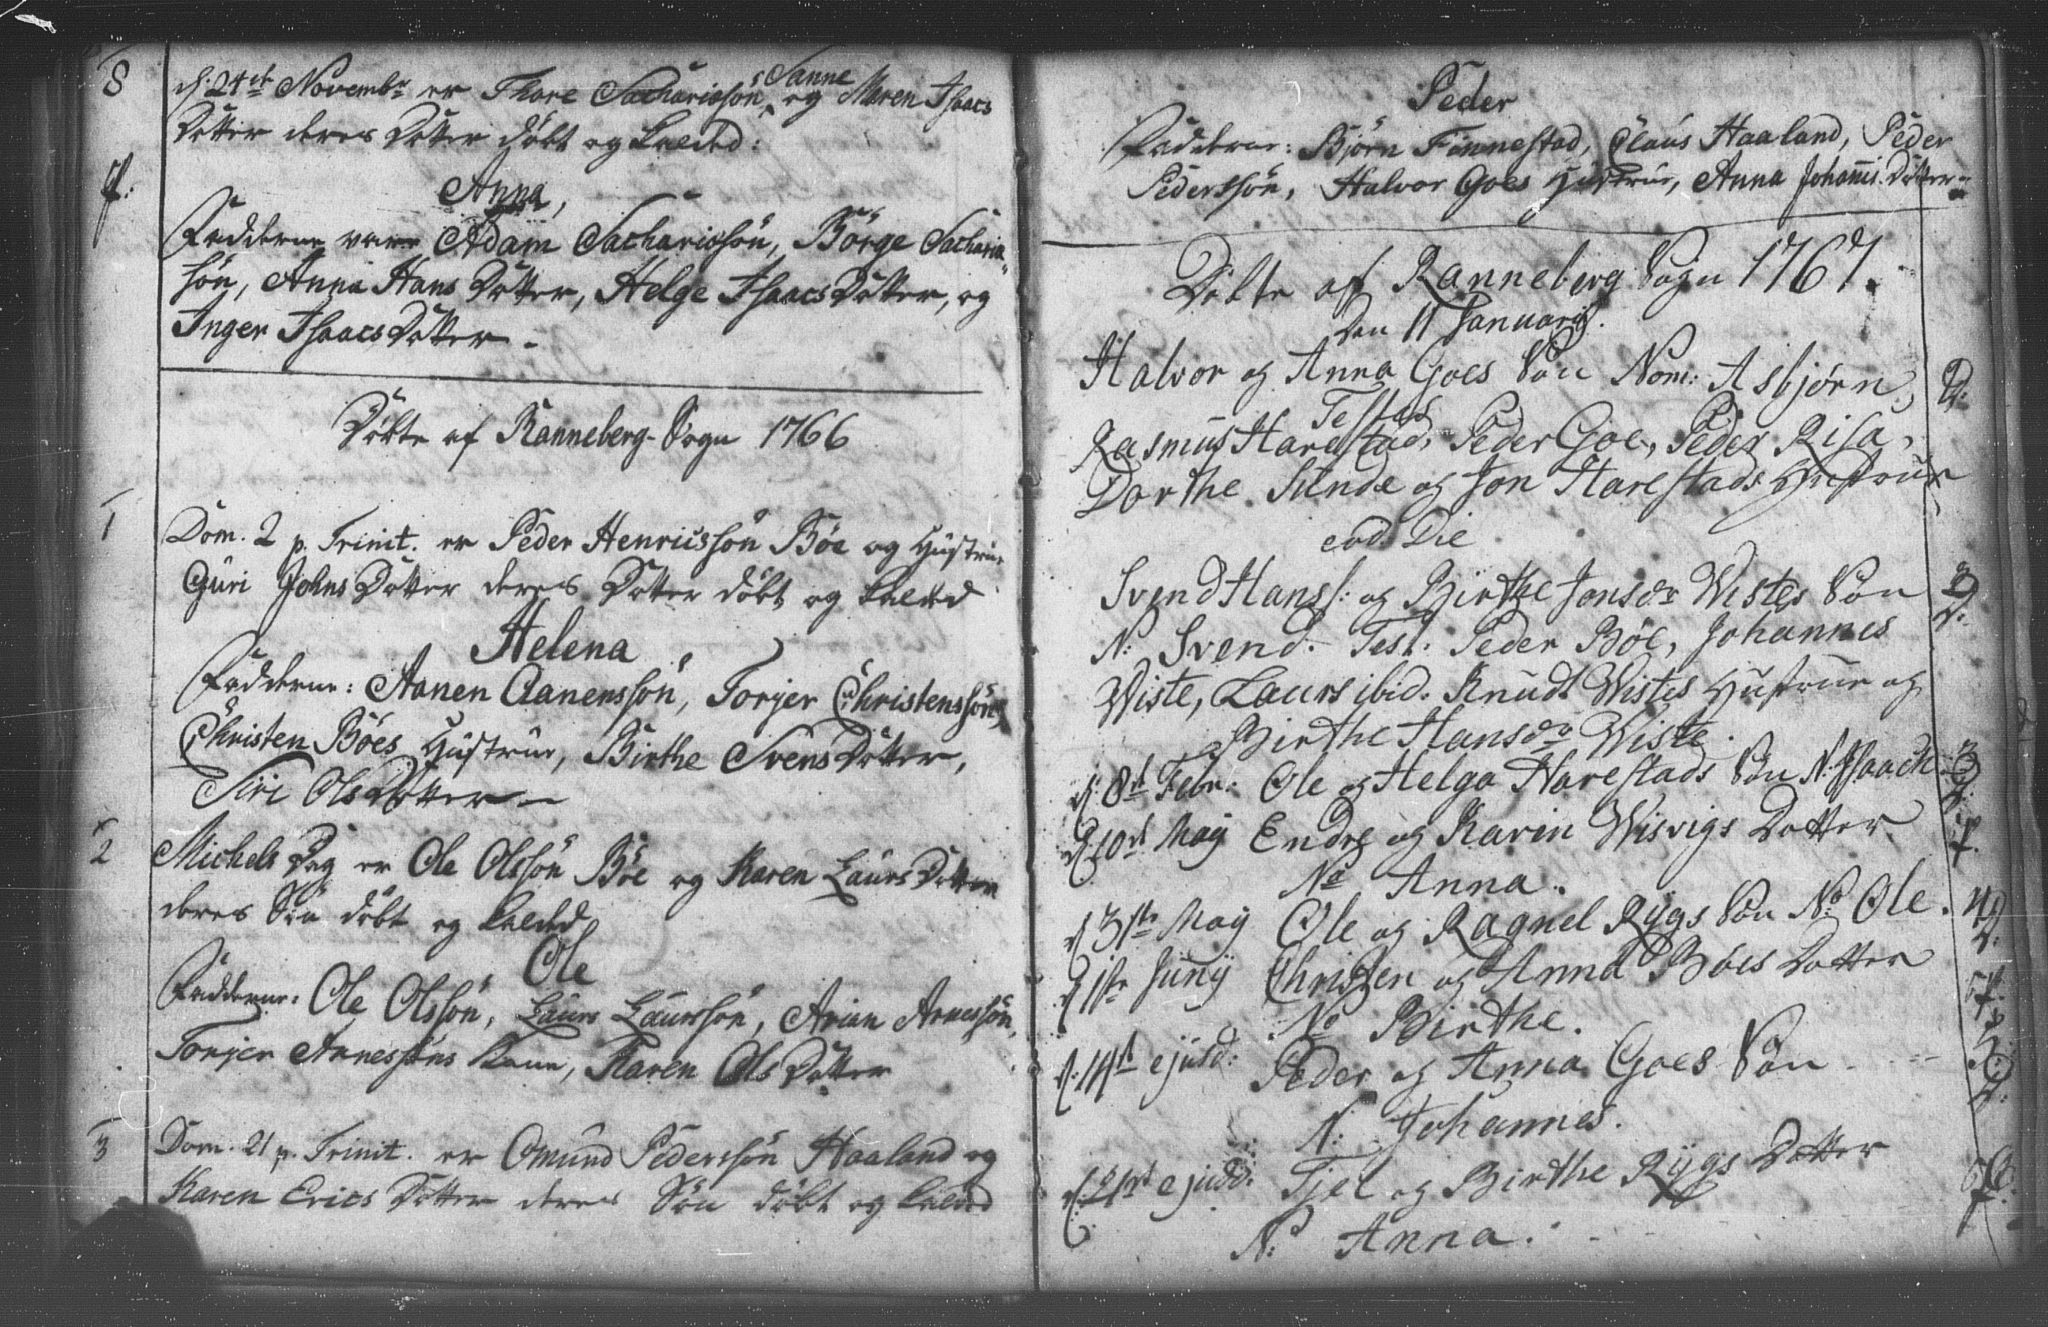 8
d. 24de Novembr er Thore Sachariasøn Sanne og Maren Isaacs
Dotter deres Dotter døbt og kalded:
Anna,
Fadderne vare Adam Sachariasøn, Børge Sacharia-
søn, Anna Hans Dotter, Helge Isaacs Dotter, og
Inger Isaacs Dotter.
Døbte af Ranneberg-Sogn 1766
1
Dom. 2 p. Trinit. er Peder Henricssøn Bøe og Hustrue
Guri Johns Dotter deres Dotter døbt og kalded
Helena
Fadderne: Aanen Aanenssøn, Torjer Christenssøn,
Christen Bøes Hustrue, Birthe Svens Dotter,
Siri Ols Dotter
2
Michels Dag er Ole Olssøn Bøe og Karen Laurs Dotter
deres Søn døbt og kalded
Ole
Fadderne: Ole Olssøn, Laurs Laurssøn, Arian Arnessøn,
Torjer Arnessøns Kone, Karen Ols Dotter
3
Dom. 21 p. Trinit. er Omund Pederssøn Haaland og
Karen Erics Dotter deres Søn døbt og kalded
Peder
Fadderne: Bjørn Finnestad, Claus Haaland, Peder
Pederssøn, Halvor Goes Hustrue, Anna Johannis Dotter
Døbte af Ranneberg Sogn 1767.
Den 11 Januarij.
Halvor og Anna Goes Søn Nom: Asbjørn
Test
Rasmus Harestad, Peder Goe, Peder Risa,
Dorthe Sunde og Jon Harestads Hustrue
eod: Die
Svend Hans: og Birthe Jonsdr Wistes Søn
N: Svend. Test. Peder Bøe, Johannes
Wiste, Laurs ibid. Knudt Wistes Hustrue og
Birthe Hansdr Wiste.
d. 8d Febr: Ole og Helga Harestads Søn N: Isaach 3
d 10d Maij Endre og Karin Wisvigs Dotter
No Anna.
d 31te Maij Ole og Ragnel Rygs Søn No Ole. 4
d 1ste Junij Christen og Anna Bøes Dotter
No Birthe.
d. 14d ejusd: Peder og Anna Goes Søn
N: Johannes.
d. 21de ejusd: Tjel og Birthe Rygs Dotter
N: Anna.